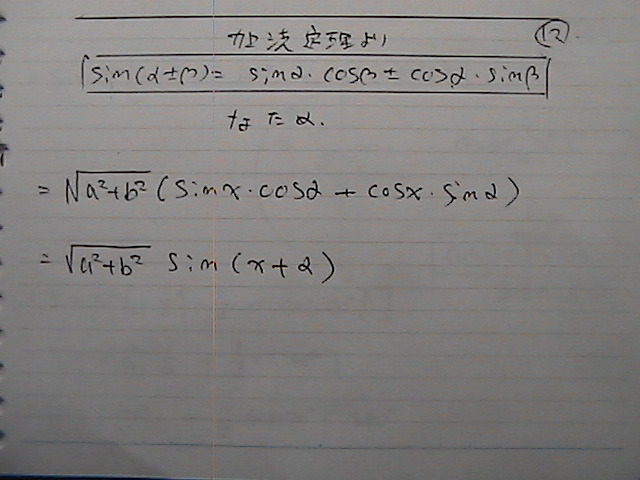 加法定理より ⑫.
sin(α±β)= sinα・cosβ ± cosα・sinβ
= √a²+b² (sinx・cosα + cosx・sinα)
= √a²+b² sin(x+α)